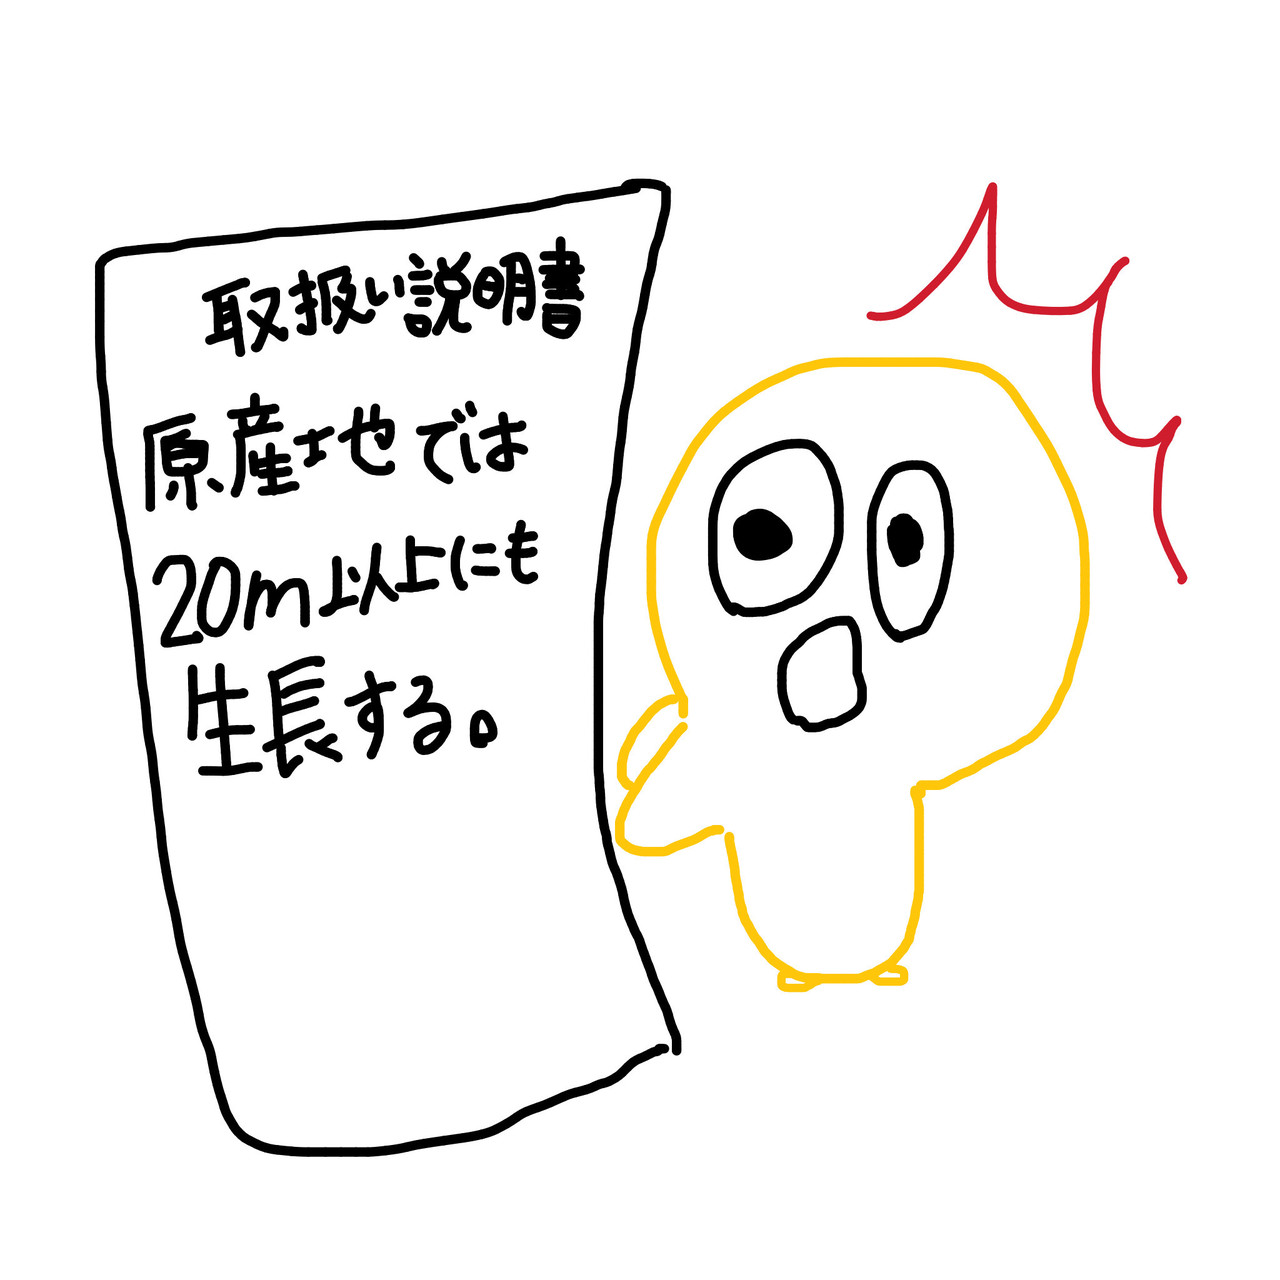 取扱い説明書
原産地では
20m以上にも
生長する。